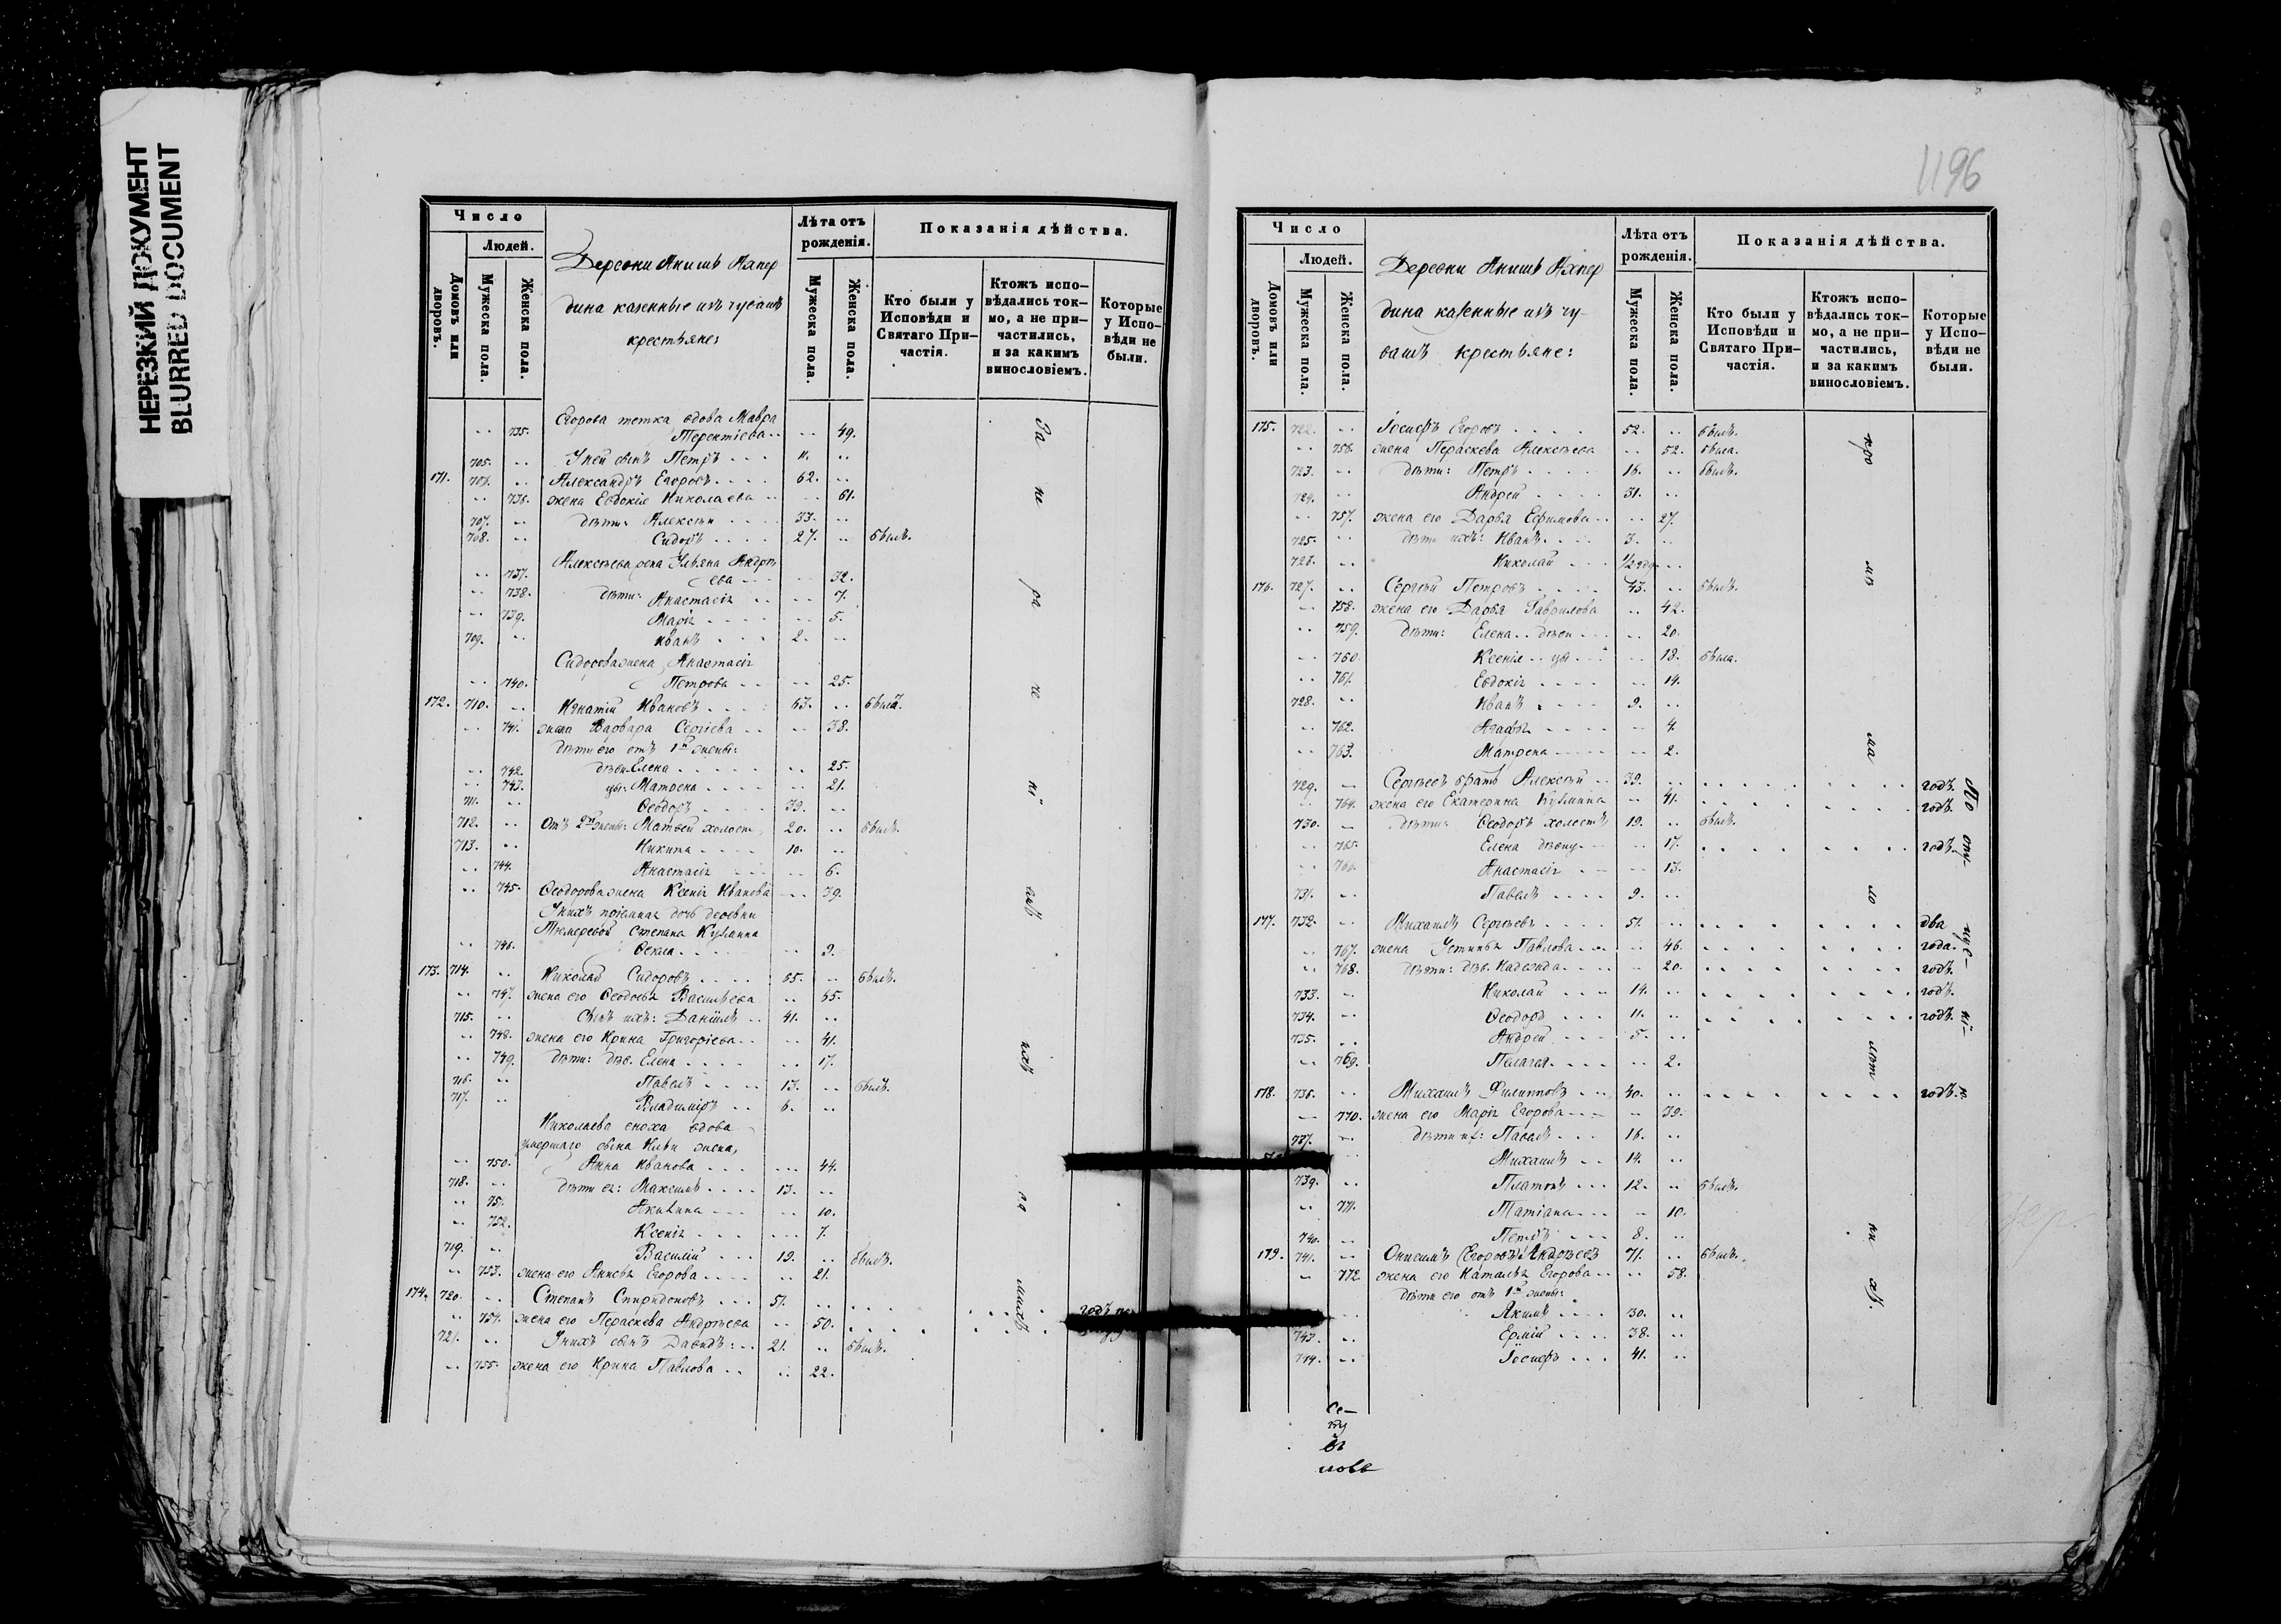 НЕРЕЗКИЙ ДОКУМЕНТ
BLURRED DOCUMENT
Число
Людей.
Домовъ или дворовъ.
Мужеска пола.
Женска пола.
Деревни Анишъ Ахпер
дина казенные изъ чувашъ
крестьяне:
Лѣта отъ рожденія.
Мужеска пола.
Женска пола.
Показанія дѣйства.
Кто были у Исповѣди и Святаго Причастія.
Ктожъ исповѣдались токмо, а не причастились, и за какимъ винословіемъ.
Которые у Исповѣди не были.
Егорова тетка вдова Мавра
.. 735. Терентіева .. .. 49.
705. .. У ней сынъ Петръ 11. ..
171. 706. .. Александръ Егоровъ 62. ..
.. 736. жена Евдокія Николаева .. 61.
707. .. дѣти: Алексѣй 33. ..
708. .. Сидоръ 27. .. былъ.
Алексѣева жена Ульяна Андрѣ
.. 737. ева .. 32.
.. 738. дѣти: Анастасія .. 7.
.. 739. Марія .. 5.
709. .. Иванъ 2. ..
Сидорова жена Анастасія
.. 740. Петрова .. 25.
172. 710. .. Игнатій Ивановъ 63. .. былъ.
.. 741. жена Варвара Сергіева .. 38.
дѣти его отъ 1й жены:
.. 742. дѣви Елена .. 25.
.. 743. цы: Матрена .. 21.
711. .. Ѳеодоръ 39. ..
712. .. Отъ 2й жены: Матвей холост 20. .. былъ.
713. .. Никита 10. ..
.. 744. Анастасія .. 6.
.. 745. Ѳеодорова жена Ксенія Иванова .. 39.
У нихъ пріемная дочь деревни
Степана Кузмина
.. 746. Ѳекла .. 9.
173. 714. .. Николай Сидоровъ 65. .. былъ.
.. 747. жена его Ѳеодосья Васильева .. 65.
715. .. Сынъ ихъ: Даніилъ 41. ..
.. 748. жена его Ирина Григоріева .. 41.
.. 749. дѣти: дѣв. Елена .. 17.
716. .. Павелъ 13. .. былъ.
717. .. Владиміръ 6. ..
Николаева сноха вдова
умершаго сына Ильи жена,
.. 750. Анна Иванова ... 44.
718. .. дѣти ея: Максимъ 13. ..
.. 751. Акилина .. 10.
.. 752. Ксенія ... 7.
719. .. Василій 19. .. былъ.
.. 753. жена его Анисья Егорова .. 21.
174. 720. .. Степанъ Спиридоновъ 51. .. годъ по
.. 754. жена его Параскева Андрѣева .. 50.
721. .. У нихъ сынъ Давидъ: 21. .. былъ.
.. 755. жена его Ирина Павлова .. 22.
За
не
ра
че
ні
емъ
ихъ
1196
Число
Людей.
Домовъ или дворовъ.
Мужеска пола.
Женска пола.
Деревни Анишъ Ахпер
дина казенные изъ чу-
вашъ крестьяне:
Лѣта отъ рожденія.
Мужеска пола.
Женска пола.
Показанія дѣйства.
Кто были у Исповѣди и Святаго Причастія.
Ктожъ исповѣдались токмо, а не причастились, и за какимъ винословіемъ.
Которые у Исповѣди не были.
175. 722. .. Іосифъ Егоровъ 52. .. былъ.
.. 756. жена Параскева Алексѣева .. 52. была.
723. .. дѣти: Петръ 16. .. былъ.
724. .. Андрей 31. ..
.. 757. жена его Дарья Ефимова .. 27.
725. .. дѣти ихъ: Иванъ 3. ..
726. .. Николай 1/2 год. ..
176. 727. .. Сергѣй Петровъ 43. .. былъ.
.. 758. жена его Дарья Гаврилова .. 42.
.. 759. дѣти: Елена .. дѣви .. 20.
.. 760. Ксенія .. цы .. 18. была.
.. 761. Евдокія .. 14.
728. .. Иванъ 9. ..
.. 762. Агафья .. 4.
.. 763. Матрена .. 2.
729. .. Сергѣевъ братъ Алексѣй 39. .. годъ.
.. 764. жена его Екатерина Кузмина .. 41. годъ.
730. .. дѣти: Ѳеодоръ холостъ 19. .. былъ.
.. 765. Елена дѣвиц. .. 17. годъ.
.. 766. Анастасія .. 13.
731. .. Павелъ 9. ..
177. 732. .. Михаилъ Сергѣевъ 51. .. два
.. 767. жена Устинья Павлова .. 46. года.
.. 768. дѣти: дѣв. Надежда .. 20. годъ.
733. .. Николай 14. .. годъ.
734. .. Ѳеодоръ 11. .. годъ.
735. .. Андрей 5. ..
.. 769. Пелагея .. 2.
178. 736. .. Михаилъ Филипповъ 40. .. годъ.
.. 770. жена его Марія Егорова .. 39.
737. .. дѣти их: Павелъ 16. ..
.. Михаилъ 14. ..
739. .. Платонъ 12. .. былъ.
.. 771. Татіана .. 10.
740. .. Петръ 8. ..
179. 741. .. Онисимъ (Егоровъ) Андрѣевъ 71. .. былъ.
.. 772. жена его Наталья Егорова .. 58.
дѣти его отъ 1й жены:
.. Акимъ 30. ..
743. .. Ермій 38. ..
744. .. Іосифъ 41. ..
По
отлу-
че-
ні-
Се-
му